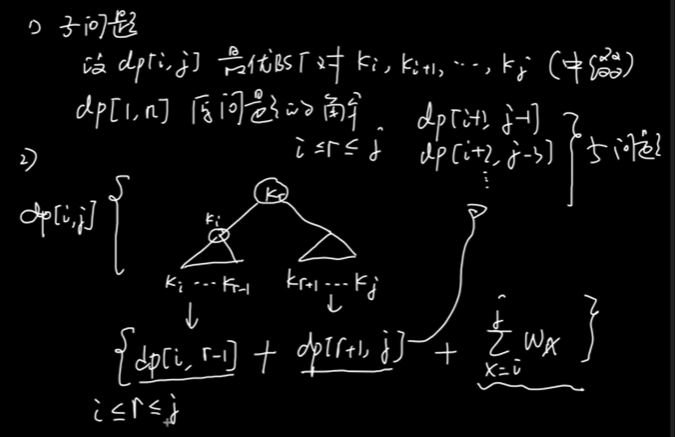 1) 子问题
设 dp[i,j] 最优BST对 Ki, Ki+1, ..., Kj (中序)
dp[1,n] 原问题的解
i ≤ r ≤ j
dp[i+1, j-1]
dp[i+2, j-3]
⋮
} 子问题
2)
dp[i,j] {
Kr
Ki
Ki ... Kr-1
Kr+1 ... Kj
{ dp[i, r-1] + dp[r+1, j] + ∑_{x=i}^{j} wx }
i ≤ r ≤ j